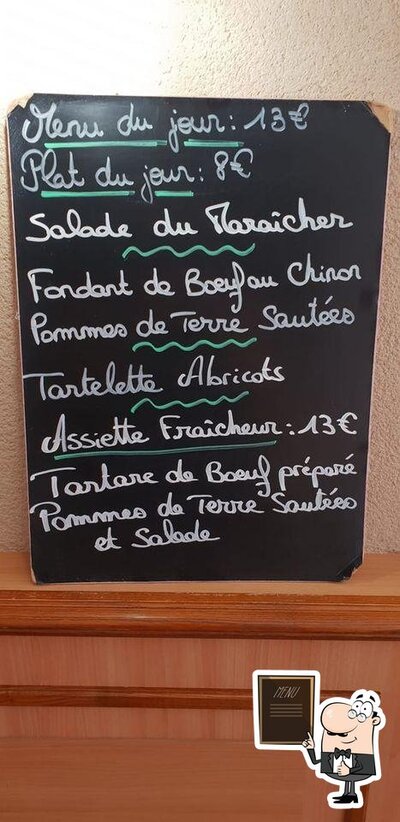 Menu du jour: 13€
Plat du jour: 8€
Salade du Maraîcher
Fondant de Bœuf au Chinon
Pommes de Terre Sautées
Tartelette Abricots
Assiette Fraîcheur: 13€
Tartare de Bœuf préparé
Pommes de Terre Sautées
et Salade
MENU